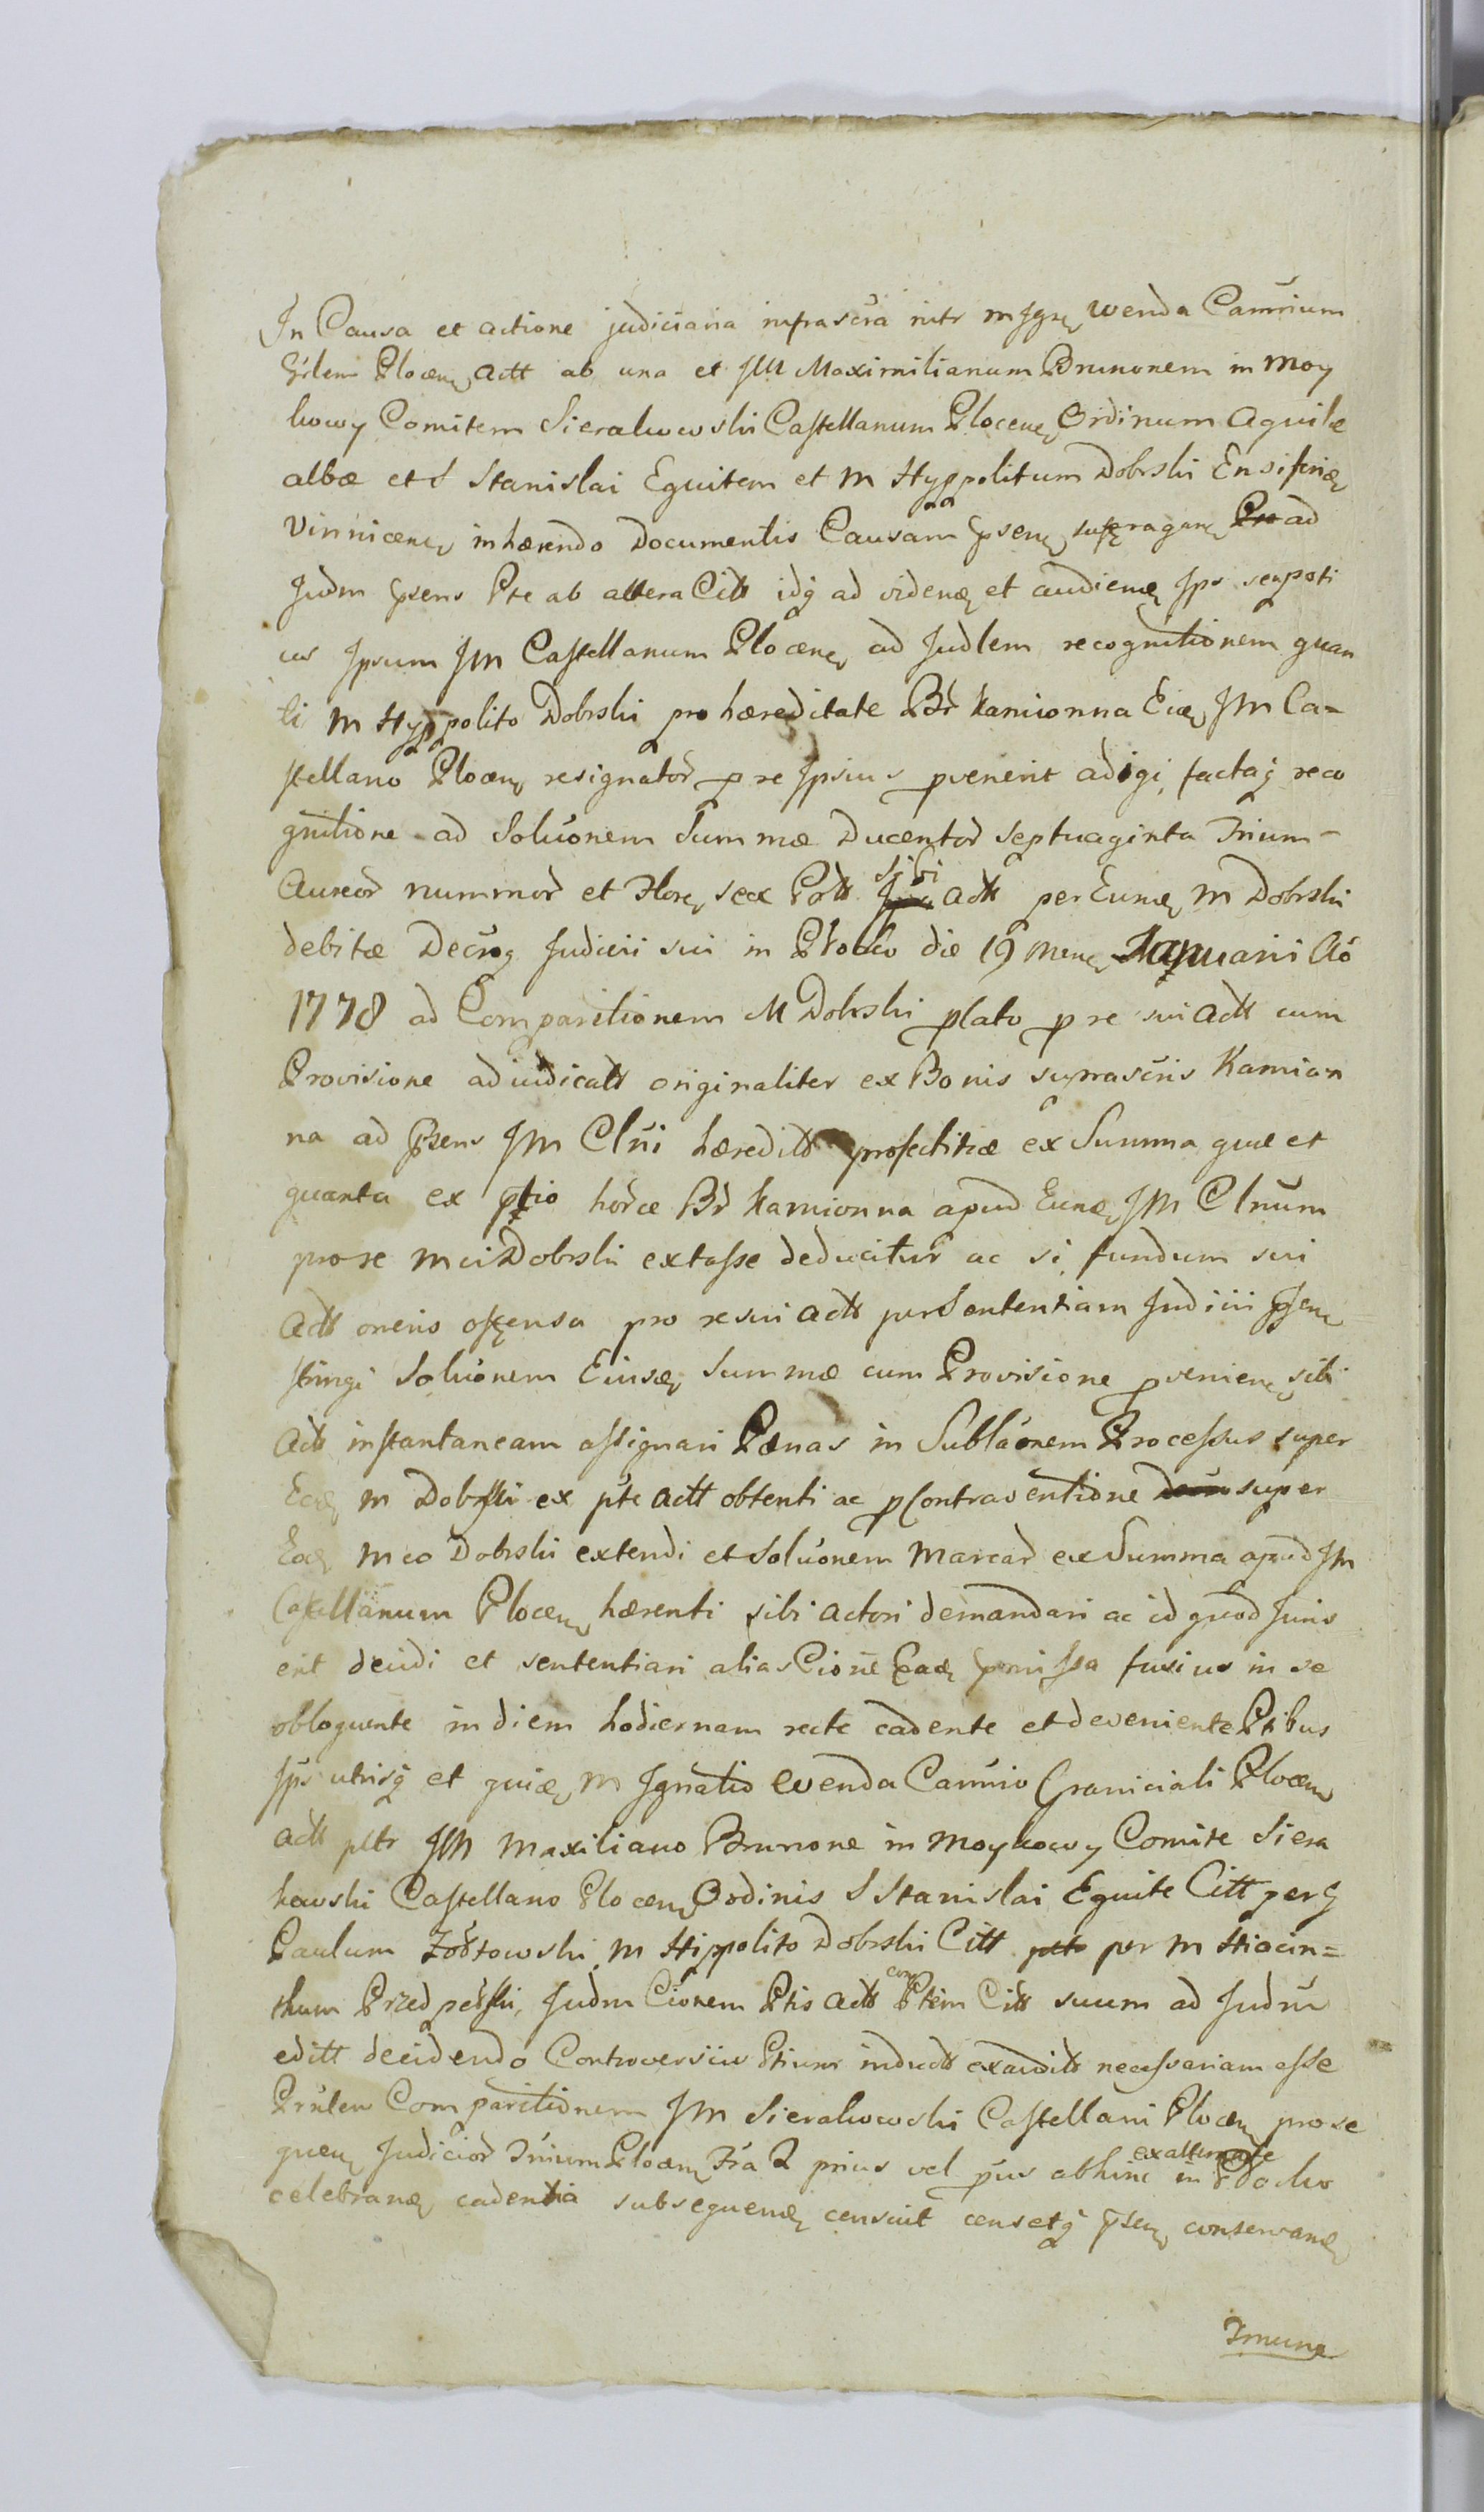 In Causa et actione judiciaria infrascra intr m Jgn wenda Camrium
Grlem Plocen, Actt ab una et JM Maximilianum Brunonem in Moy
kowy Comitem Sierakowski Castellanum Plocen, Ordinum Aquilæ
albæ et S Stanislai Equitem et M Hyppolitum Dobrski Ensiferũ
Vinnicen, inhærendo Documentis Causam psen, supragen, ad
Judm psens Pte ab altera Citt idq ad viden, et audien, Ips seu poti
us Ipsum JM Castellanum Plocen, ad Judlem recognitionem quan
ti M Hyppolito Dobrski pro hæreditate Br Kamionna Eid, JM Ca=
stellano Plocen, resignator p re Ipsius pvenerit adigi, factaq reco
gnitione ad Soluonem Summæ Ducentor Septuaginta Trium -
Aureor nummor et Flor, sex Poll sibi Actt per Eund, M Dobrski
debitæ Decroq Judicii sui in Płocko die 19 Men, Januarii Ao
1778 ad Comparitionem M Dobrski plato p re sui Actt cum
Provisione adiudicatt originaliter ex Bonis suprascris Kamion
na ad psens JM Clni hæreditt profectitiæ ex Summa quæ et
quanta ex ptio horce Br Kamionna apud Eund, JM Clnum
pro re mci Dobrski extasse deducitur ac si fundum sui
Actt oneris ostensa pro re sui Actt per Sententiam Judicii psen,
stringi Soluonem Eiusd, Summæ cum Provisione pvenien, sibi
Actt instantaneam assignari Pænas in Sublaonem Processus super
Eod, m Dobrski ex pte Actt obtenti ac p Contraventione super
Eod, mco Dobrski extendi et Soluonem Marcar ex Summa apud JM
Castellanum Plocen, hærenti sibi Actori demandari ac id quod Juris
erit decidi et sententiari alias Cione Ead, pmissa fusius in se
obloquente in diem hodiernam recte cadente et deveniente Ptibus
Ips utrisq et quid, M Ignatio Wenda Camrio Graniciali Plocen,
Actt pltr JM Maxiliano Brunone in Moykowy Comite Siera
kowski Castellano Plocen, Ordinis S Stanislai Equite Citt per G
Paulum Zołtowski, M Hippolito Dobrski Citt per M Hiacin=
thum Przedpełski, Judm Cionem Ptis Actt con Ptem Citt suum ad Judm
editt decidendo Controversiis Ptium inductt exauditt necessariam esse
Prnlem Comparitionem JM Sierakowski Castellani Plocen, pro se
quen, Judicior Trium Plocen, Fra 2 prius vel pus abhinc ex alternate in Płocko
celebran, cadentia subsequen, censuit censetq psen, conservan,